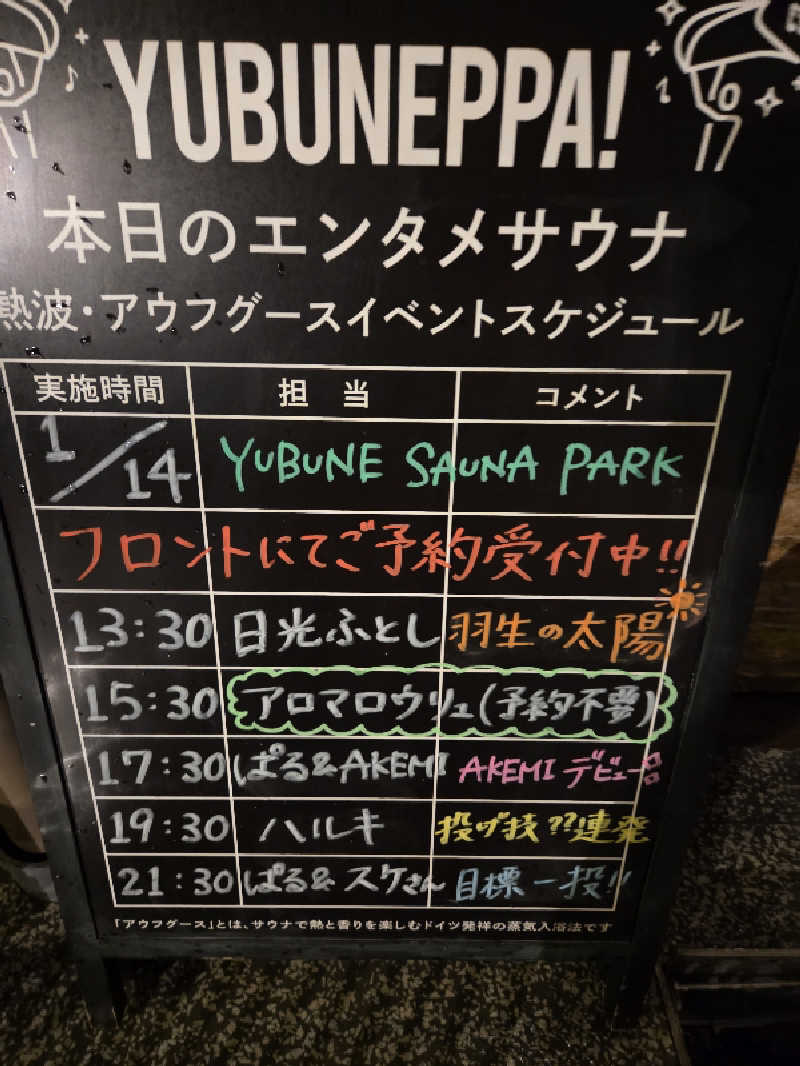 YUBUNEPPA!
本日のエンタメサウナ
熱波・アウフグースイベントスケジュール
実施時間 担当 コメント
1/14 YUBUNE SAUNA PARK
フロントにてご予約受付中!!
13:30 日光ふとし 羽生の太陽
15:30 アロマロウリュ(予約不要)
17:30 ぱる&AKEMI AKEMIデビュー!!
19:30 ハルキ 投げ技??連発
21:30 ぱる&スケさん 目標一投!!
「アウフグース」とは、サウナで熱と香りを楽しむドイツ発祥の蒸気入浴法です